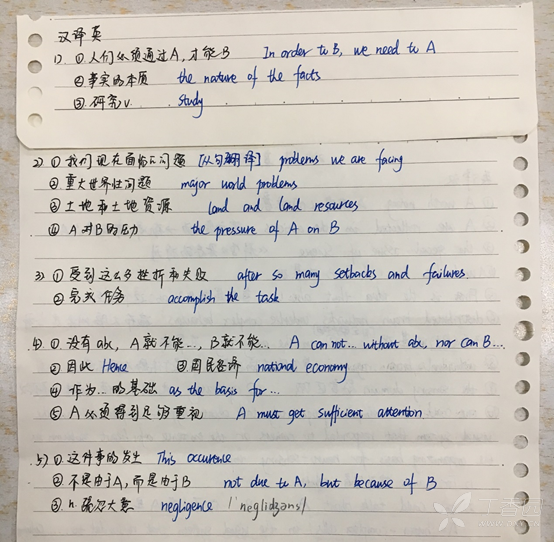 汉译英
1) ① 人们必须通过A,才能B In order to B, we need to A
② 事实的本质 the nature of the facts
③ 研究 v. study
2) ① 我们现在面临的问题 [从句翻译] problems we are facing
② 重大世界性问题 major world problems
③ 土地和土地资源 land and land resources
④ A对B的压力 the pressure of A on B
3) ① 受到这么多挫折和失败 after so many setbacks and failures.
② 完成任务 accomplish the task
4) ① 没有abx, A就不能..., B就不能... A can not... without abx, nor can B...
② 因此 Hence ③ 国民经济 national economy
④ 作为...的基础 as the basis for...
⑤ A必须得到足够重视 A must get sufficient attention
5) ① 这件事的发生 This occurence
② 不是由于A,而是由于B not due to A, but because of B
③ n. 疏忽大意 negligence /ˈneglidʒəns/